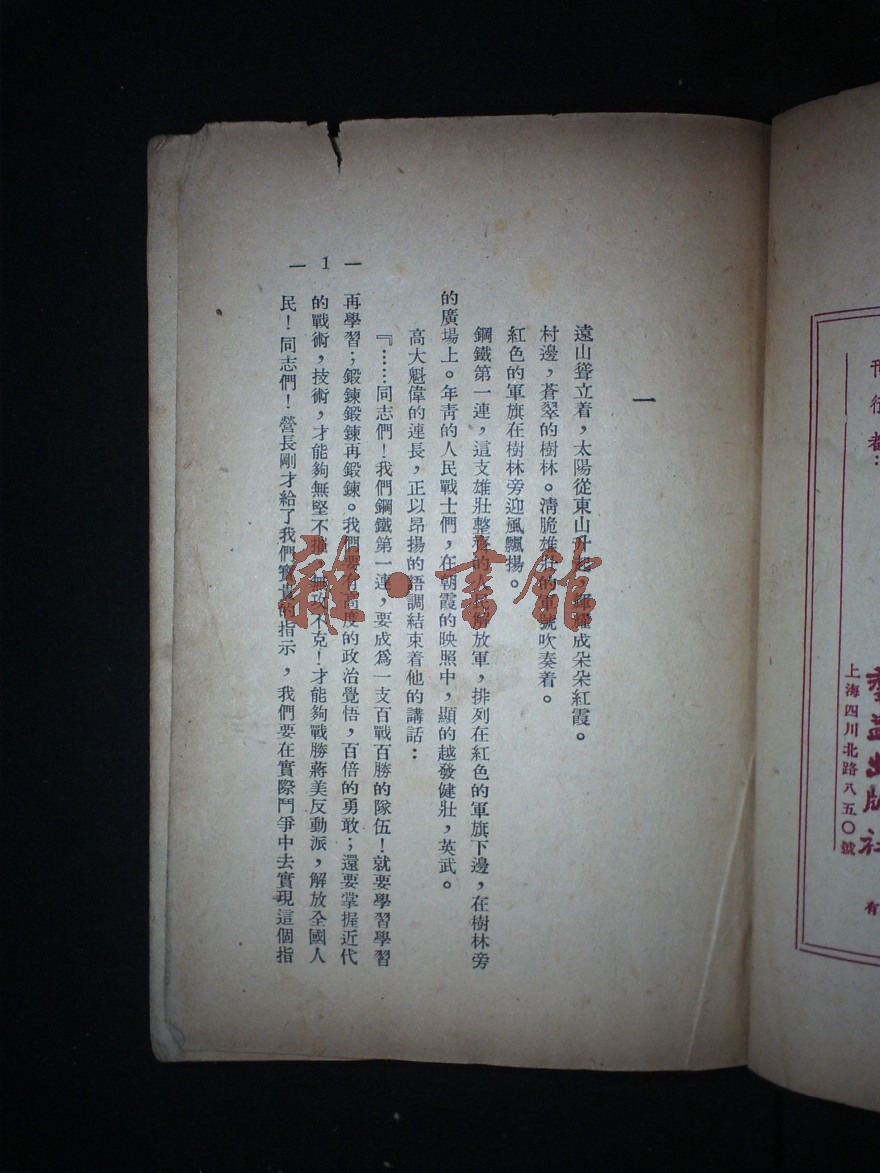 刊行者：
羣益出版社
上海四川北路八五〇號
有
一
遠山聳立着，太陽從東山升起，輝耀成朵朵紅霞。
村邊，蒼翠的樹林。淸脆雄壯的軍號吹奏着。
紅色的軍旗在樹林旁迎風飄揚。
鋼鐵第一連，這支雄壯整齊的人民解放軍，排列在紅色的軍旗下邊，在樹林旁
的廣場上。年靑的人民戰士們，在朝霞的映照中，顯的越發健壯，英武。
高大魁偉的連長，正以昂揚的語調結束着他的講話：
『……同志們！我們鋼鐵第一連，要成爲一支百戰百勝的隊伍！就要學習學習
再學習；鍛鍊鍛鍊再鍛鍊。我們要有高度的政治覺悟，百倍的勇敢；還要掌握近代
的戰術，技術，才能夠無堅不摧，無攻不克！才能夠戰勝蔣美反動派，解放全國人
民！同志們！營長剛才給了我們寶貴的指示，我們要在實際鬥爭中去實現這個指
— 1 —
雜·書館